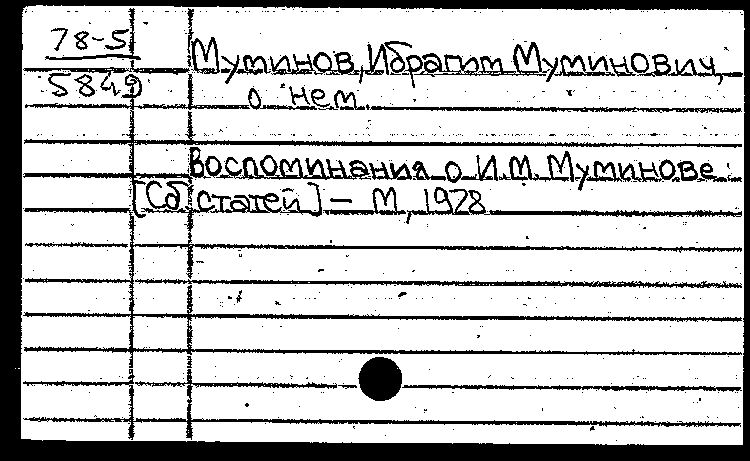 78-5
5849
Муминов, Ибрагим Муминович,
о нем.
Воспоминания о И.М. Муминове:
[Сб. статей] — М, 1978